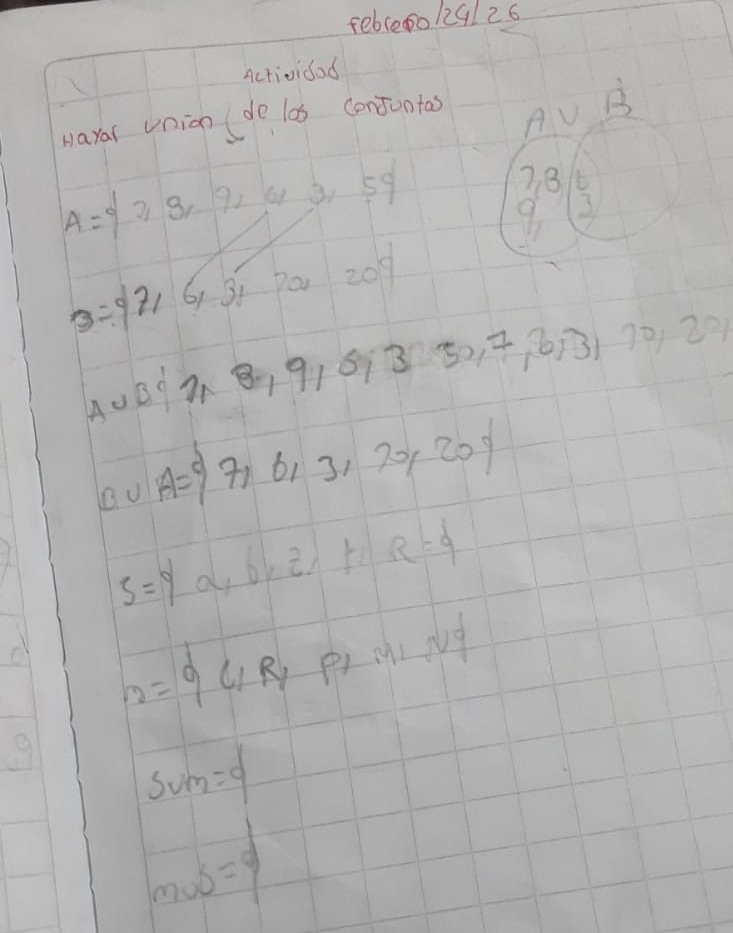 febrero/24/26
Actividad
Hayar union de los conjuntos
A U B
7, 8 6
9, 3
A={7, 8, 9, 6, 3, 5}
B={7, 6, 3, 70, 20}
A U B{7, 8, 9, 6, 3 50, 7, 6, 3, 70, 20,
B U A={7, 6, 3, 70, 20}
S={a, b, z, t, R={
m={C, R, P, M, N}
SUm={
mUS={